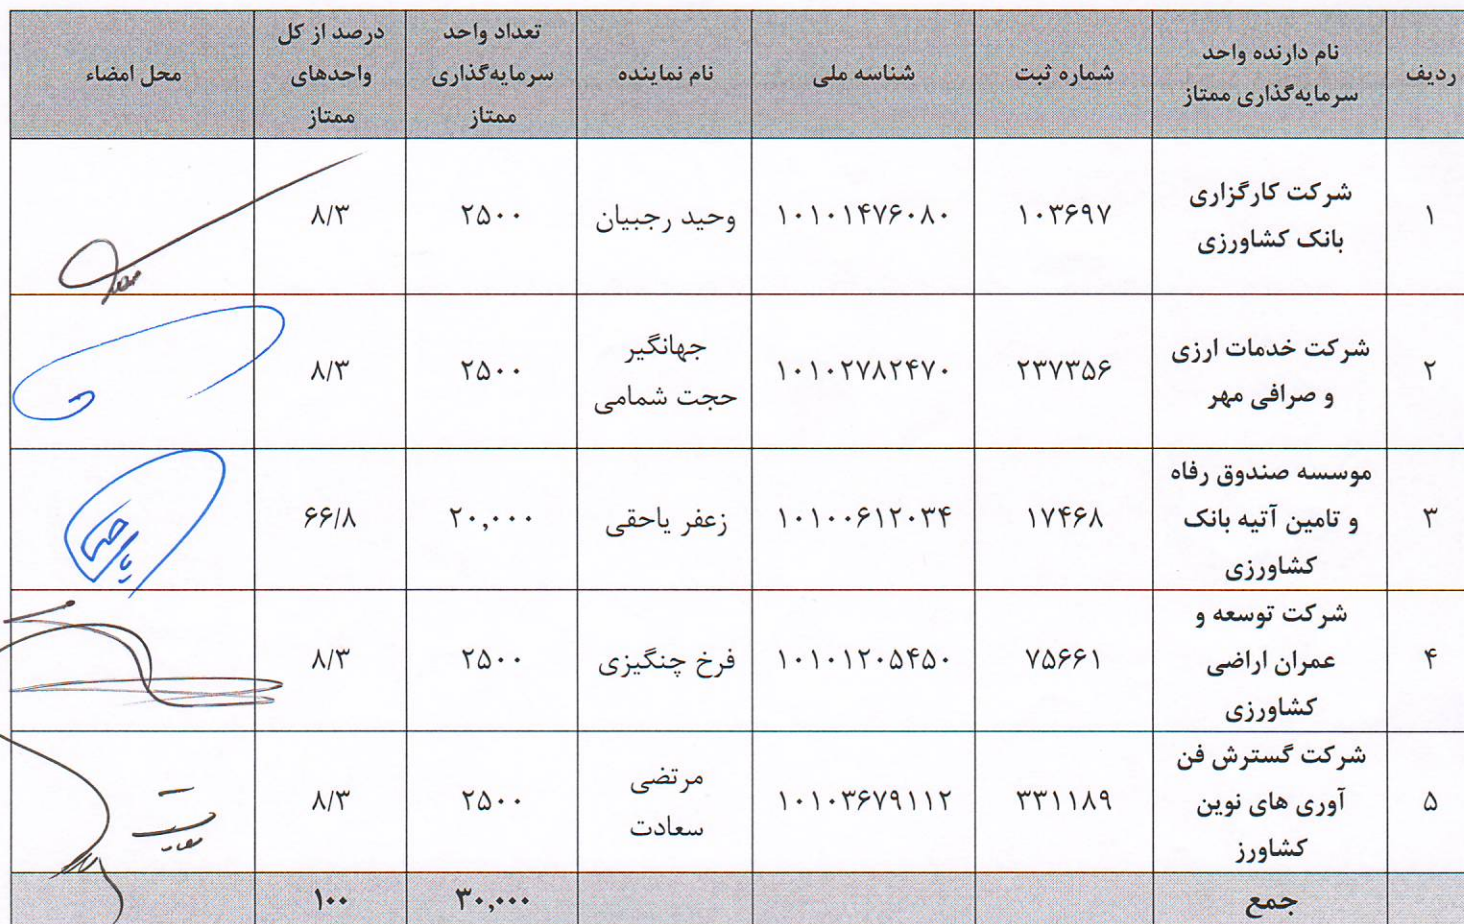 ردیف نام دارنده واحد سرمایه‌گذاری ممتاز شماره ثبت شناسه ملی نام نماینده تعداد واحد سرمایه‌گذاری ممتاز درصد از کل واحدهای ممتاز محل امضاء
۱ شرکت کارگزاری بانک کشاورزی ۱۰۳۶۹۷ ۱۰۱۰۱۴۷۶۰۸۰ وحید رجبیان ۲۵۰۰ ۸/۳
۲ شرکت خدمات ارزی و صرافی مهر ۲۳۷۳۵۶ ۱۰۱۰۲۷۸۲۴۷۰ جهانگیر حجت شمامی ۲۵۰۰ ۸/۳
۳ موسسه صندوق رفاه و تامین آتیه بانک کشاورزی ۱۷۴۶۸ ۱۰۱۰۰۶۱۲۰۳۴ زعفر یاحقی ۲۰,۰۰۰ ۶۶/۸
۴ شرکت توسعه و عمران اراضی کشاورزی ۷۵۶۶۱ ۱۰۱۰۱۲۰۵۴۵۰ فرخ چنگیزی ۲۵۰۰ ۸/۳
۵ شرکت گسترش فن آوری های نوین کشاورز ۳۳۱۱۸۹ ۱۰۱۰۳۶۷۹۱۱۲ مرتضی سعادت ۲۵۰۰ ۸/۳
جمع ۳۰,۰۰۰ ۱۰۰